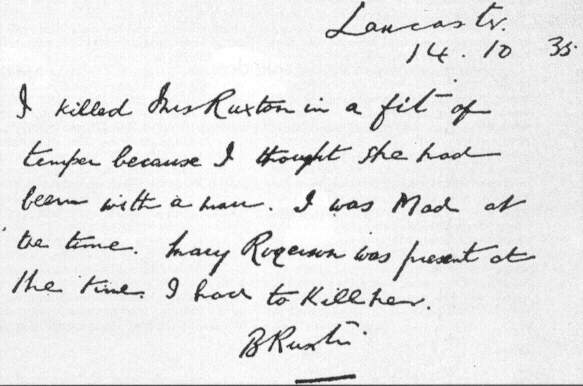 Lancaster.
14. 10 35.
I killed Mrs Ruxton in a fit of
temper because I thought she had
been with a man. I was Mad at
the time. Mary Rogerson was present at
the time. I had to Kill her.
B Ruxton